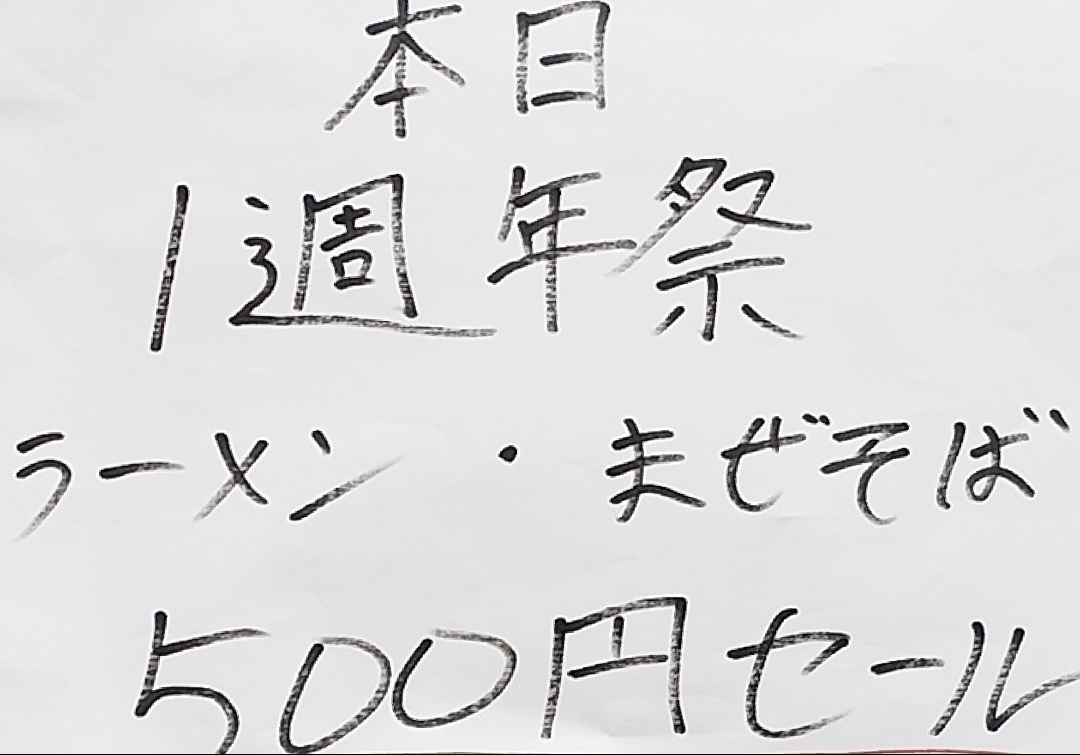 本日
1週年祭
ラーメン・まぜそば
500円セール